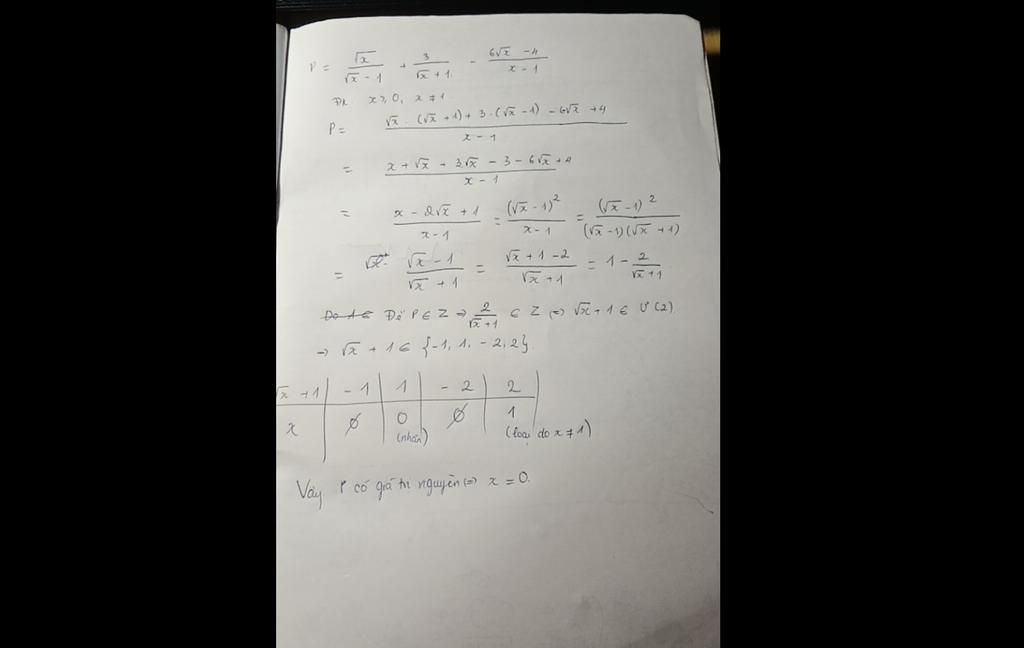 P = √x/(√x - 1) + 3/(√x + 1) - (6√x - 4)/(x - 1)
ĐK x ≥ 0, x ≠ 1
P = (√x · (√x + 1) + 3 · (√x - 1) - 6√x + 4)/(x - 1)
= (x + √x + 3√x - 3 - 6√x + 4)/(x - 1)
= (x - 2√x + 1)/(x - 1) = (√x - 1)²/(x - 1) = (√x - 1)²/((√x - 1)(√x + 1))
= (√x - 1)/(√x + 1) = (√x + 1 - 2)/(√x + 1) = 1 - 2/(√x + 1)
Để P ∈ Z => 2/(√x + 1) ∈ Z (=) √x + 1 ∈ Ư(2)
=> √x + 1 ∈ {-1, 1, -2, 2}
√x + 1 | -1 | 1 | -2 | 2
x | ∅ | 0 (nhận) | ∅ | 1 (loại do x ≠ 1)
Vậy P có giá trị nguyên (=) x = 0.